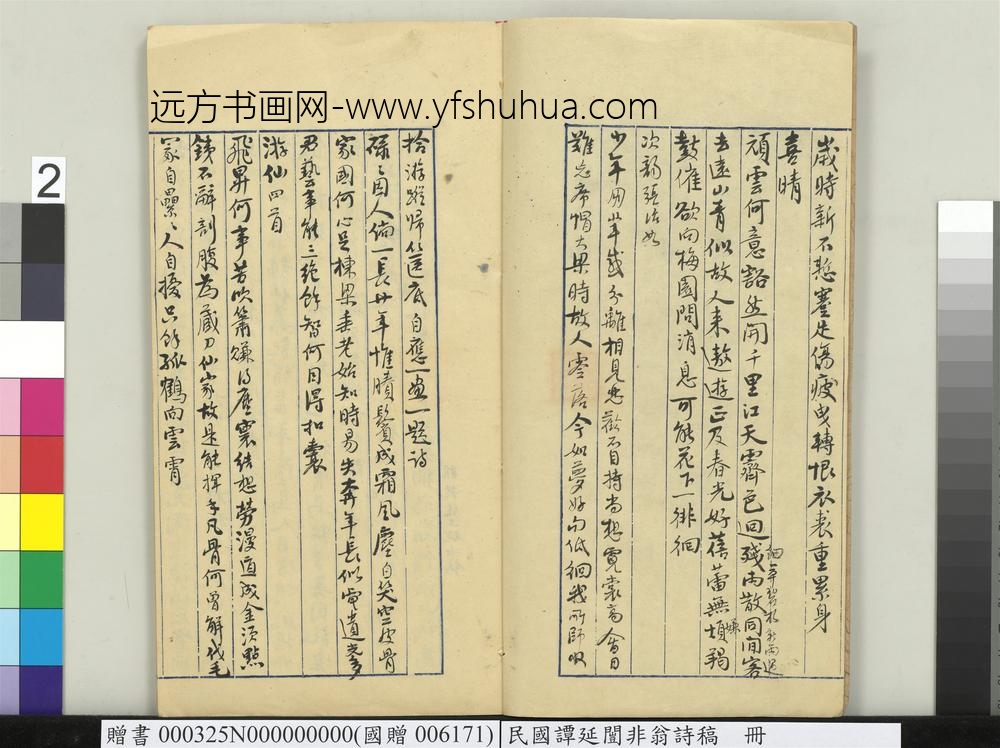 远方书画网-www.yfshuhua.com
歲時新不整蹇足傷疲曳轉恨衣裘重累身
喜晴
頑雲何意豁然開千里江天霽色回殘雨散同閒客
去遠山青似故人來遨遊正及春光好蓓蕾無煩羯
鼓催欲向梅園問消息可能花下一徘徊
次韻張
少年用半歲分離相見悲歡不自持尚想霓裳高會日
難忘席帽大梁時故人零落今如夢好句低徊我所師收
拾游蹤歸篋底自應一畫一題詩
碌碌因人倘一長廿年惟賸鬢成霜風塵自笑空皮骨
家國何心足棟梁垂老始知時易失奔年長似電遺光多
君藝事能三絕餘智何因得扣囊
游仙四首
飛昇何事苦吹簫雲結想勞漫道成金須點
鐵不辭剖腹為藏刀仙家故是能揮手凡骨何曾解伐毛
冢自纍纍人自擾只餘孤鶴向雲霄
2
贈書 000325N000000000(國贈 006171) 民國譚延闓非翁詩稿 冊